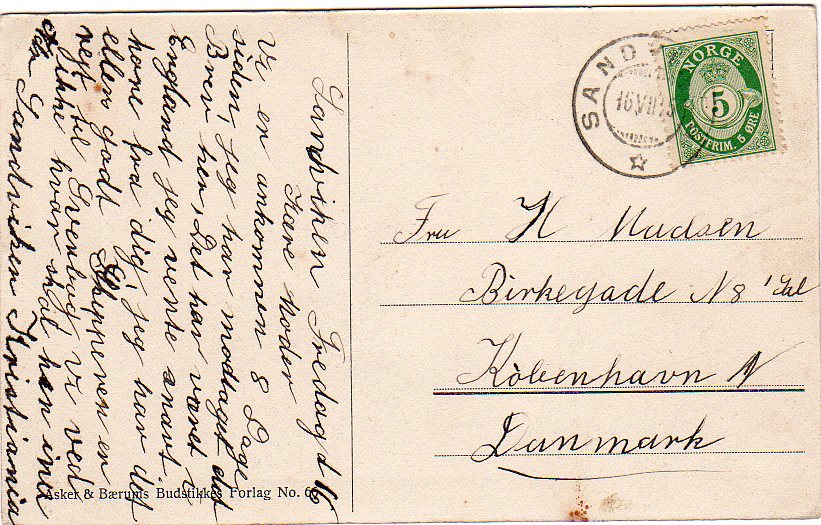 Sandviken Fredag d 16
Kære Moder
Vi er ankommen 8 Dage
siden, jeg har modtaget det
Brev her, Det har været i
England jeg vente snart
høre fra dig, jeg har det
ellers godt Skipperen er
rejst til vi ved
ikke hvor skal hen ind
Sandviken Kristiania
Asker & Bærums Budstikkes Forlag No. 6
SAND
16 VII
NORGE
5
POSTFRIM. 5 ØRE
Fru H Madsen
Birkegade N 8 1 Sal
København N
Danmark